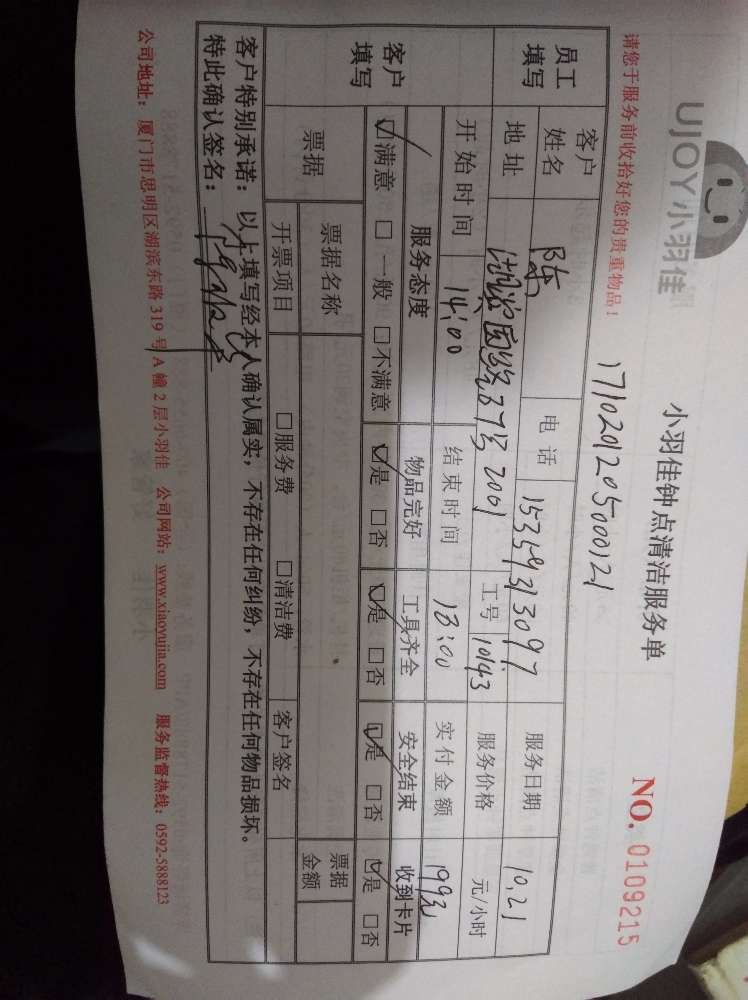 UJOY小羽佳
小羽佳钟点清洁服务单
NO. 0109215
请您于服务前收拾好您的贵重物品！
1710201205000121
员工填写
客户姓名 陈 电话 15359313097 服务日期 10.21
地址 37号2001 工号 10143 服务价格 元/小时
开始时间 14:00 结束时间 18:00 实付金额
客户填写
服务态度 物品完好 工具齐全 安全结束 收到卡片
☑满意 □一般 □不满意 ☑是 □否 ☑是 □否 ☑是 □否 ☑是 □否
票据 票据名称 票据金额
开票项目 □服务费 □清洁费 客户签名
客户特别承诺：以上填写经本人确认属实，不存在任何纠纷，不存在任何物品损坏。
特此确认签名：
公司地址：厦门市思明区湖滨东路 319 号 A 幢 2 层小羽佳 公司网站：www.xiaoyujia.com 服务监督热线：0592-5888123